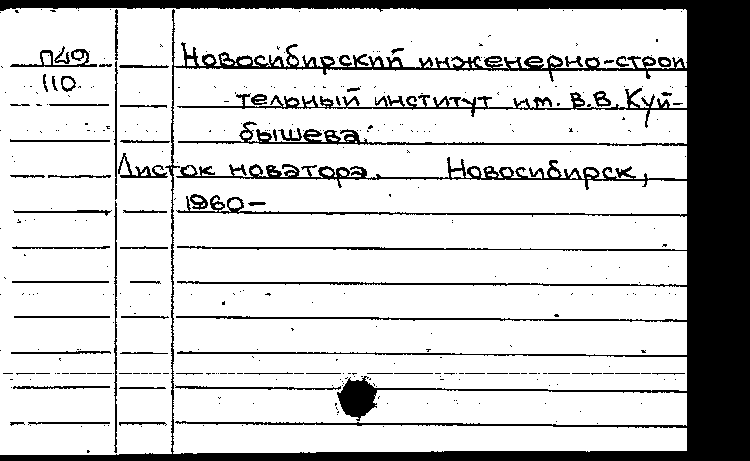 П49 Новосибирский инженерно-строи
110 тельный институт им. В.В. Куй-
бышева.
Листок новатора. Новосибирск,
1960-